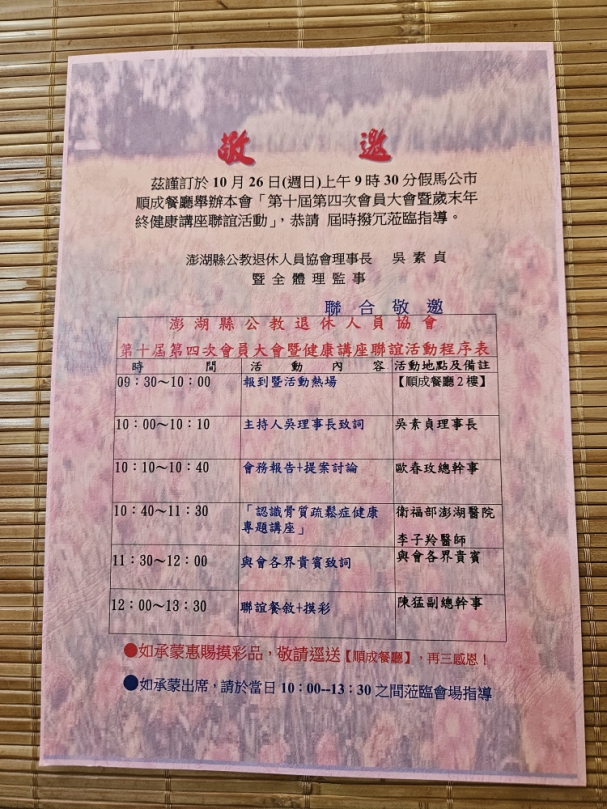 敬邀
茲謹訂於10月26日(週日)上午9時30分假馬公市
順成餐廳舉辦本會「第十屆第四次會員大會暨歲末年
終健康講座聯誼活動」，恭請 屆時撥冗蒞臨指導。
澎湖縣公教退休人員協會理事長 吳素貞
暨全體理監事
聯合敬邀
澎湖縣公教退休人員協會
第十屆第四次會員大會暨健康講座聯誼活動程序表
時間 活動內容 活動地點及備註
09：30～10：00 報到暨活動熱場 【順成餐廳2樓】
10：00～10：10 主持人吳理事長致詞 吳素貞理事長
10：10～10：40 會務報告+提案討論 歐春玫總幹事
10：40～11：30 「認識骨質疏鬆症健康 衛福部澎湖醫院
專題講座」 李子羚醫師
11：30～12：00 與會各界貴賓致詞 與會各界貴賓
12：00～13：30 聯誼餐敘+摸彩 陳猛副總幹事
●如承蒙惠賜摸彩品，敬請逕送【順成餐廳】，再三感恩！
●如承蒙出席，請於當日10：00--13：30之間蒞臨會場指導